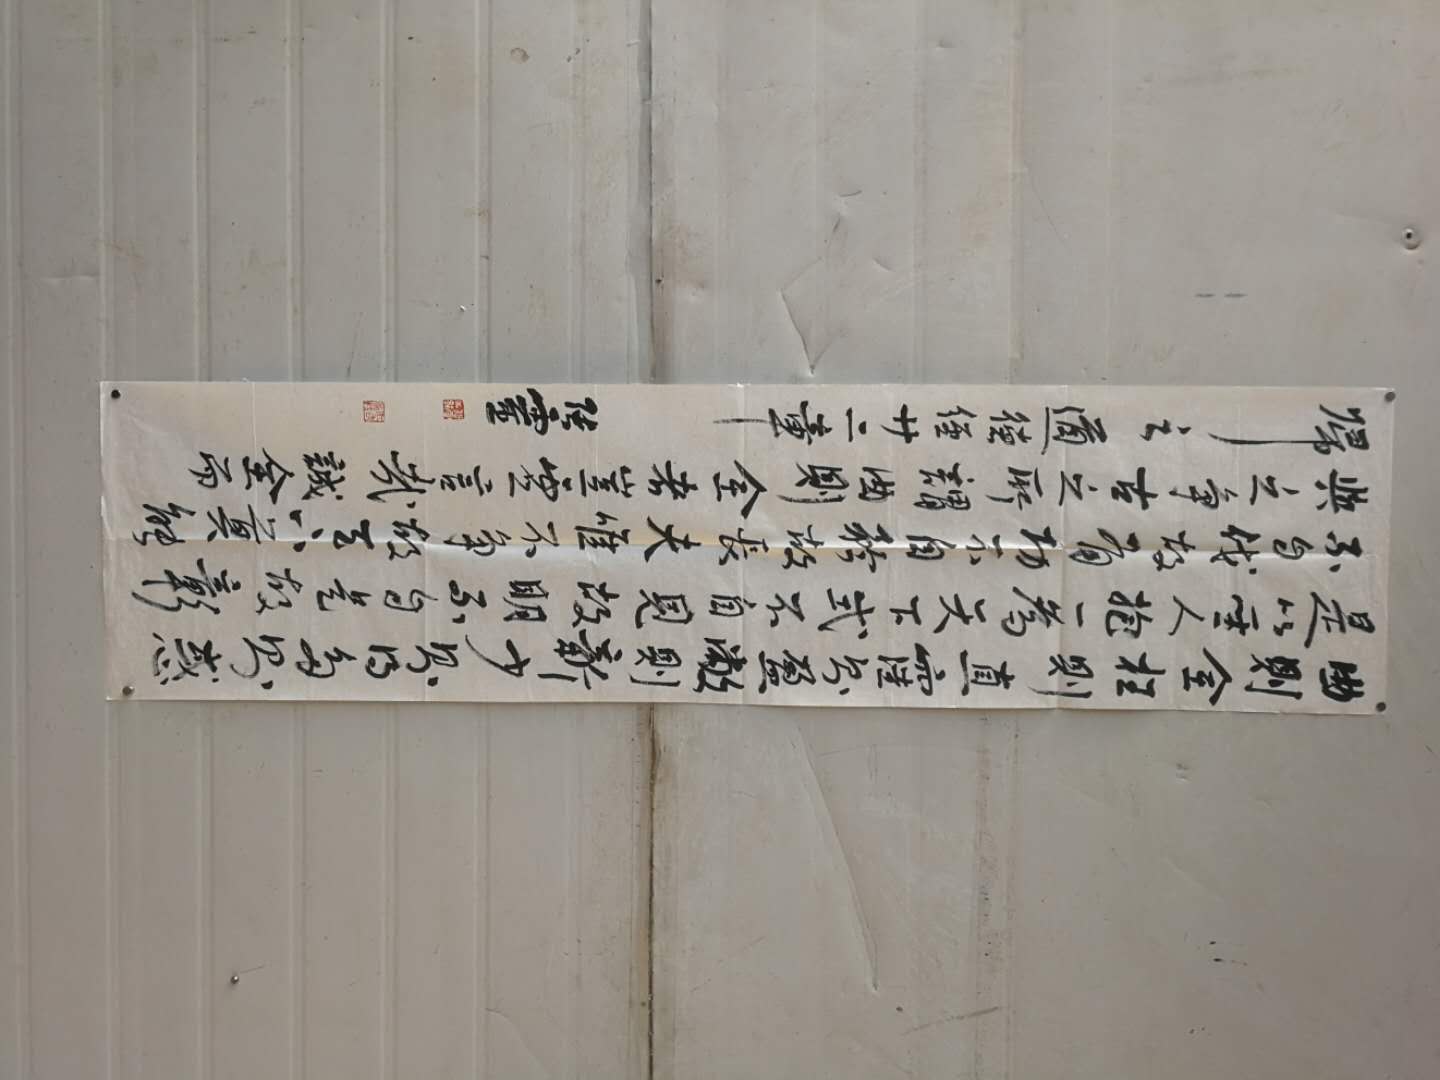 曲則全枉則直窪則盈敝則新少則得多則惑
是以聖人抱一為天下式不自見故明不自是故彰
不自伐故有功不自矜故長夫惟不爭故天下莫能
與之爭古之所謂曲則全者豈虛言哉誠全而
歸之道德經廿二章
張